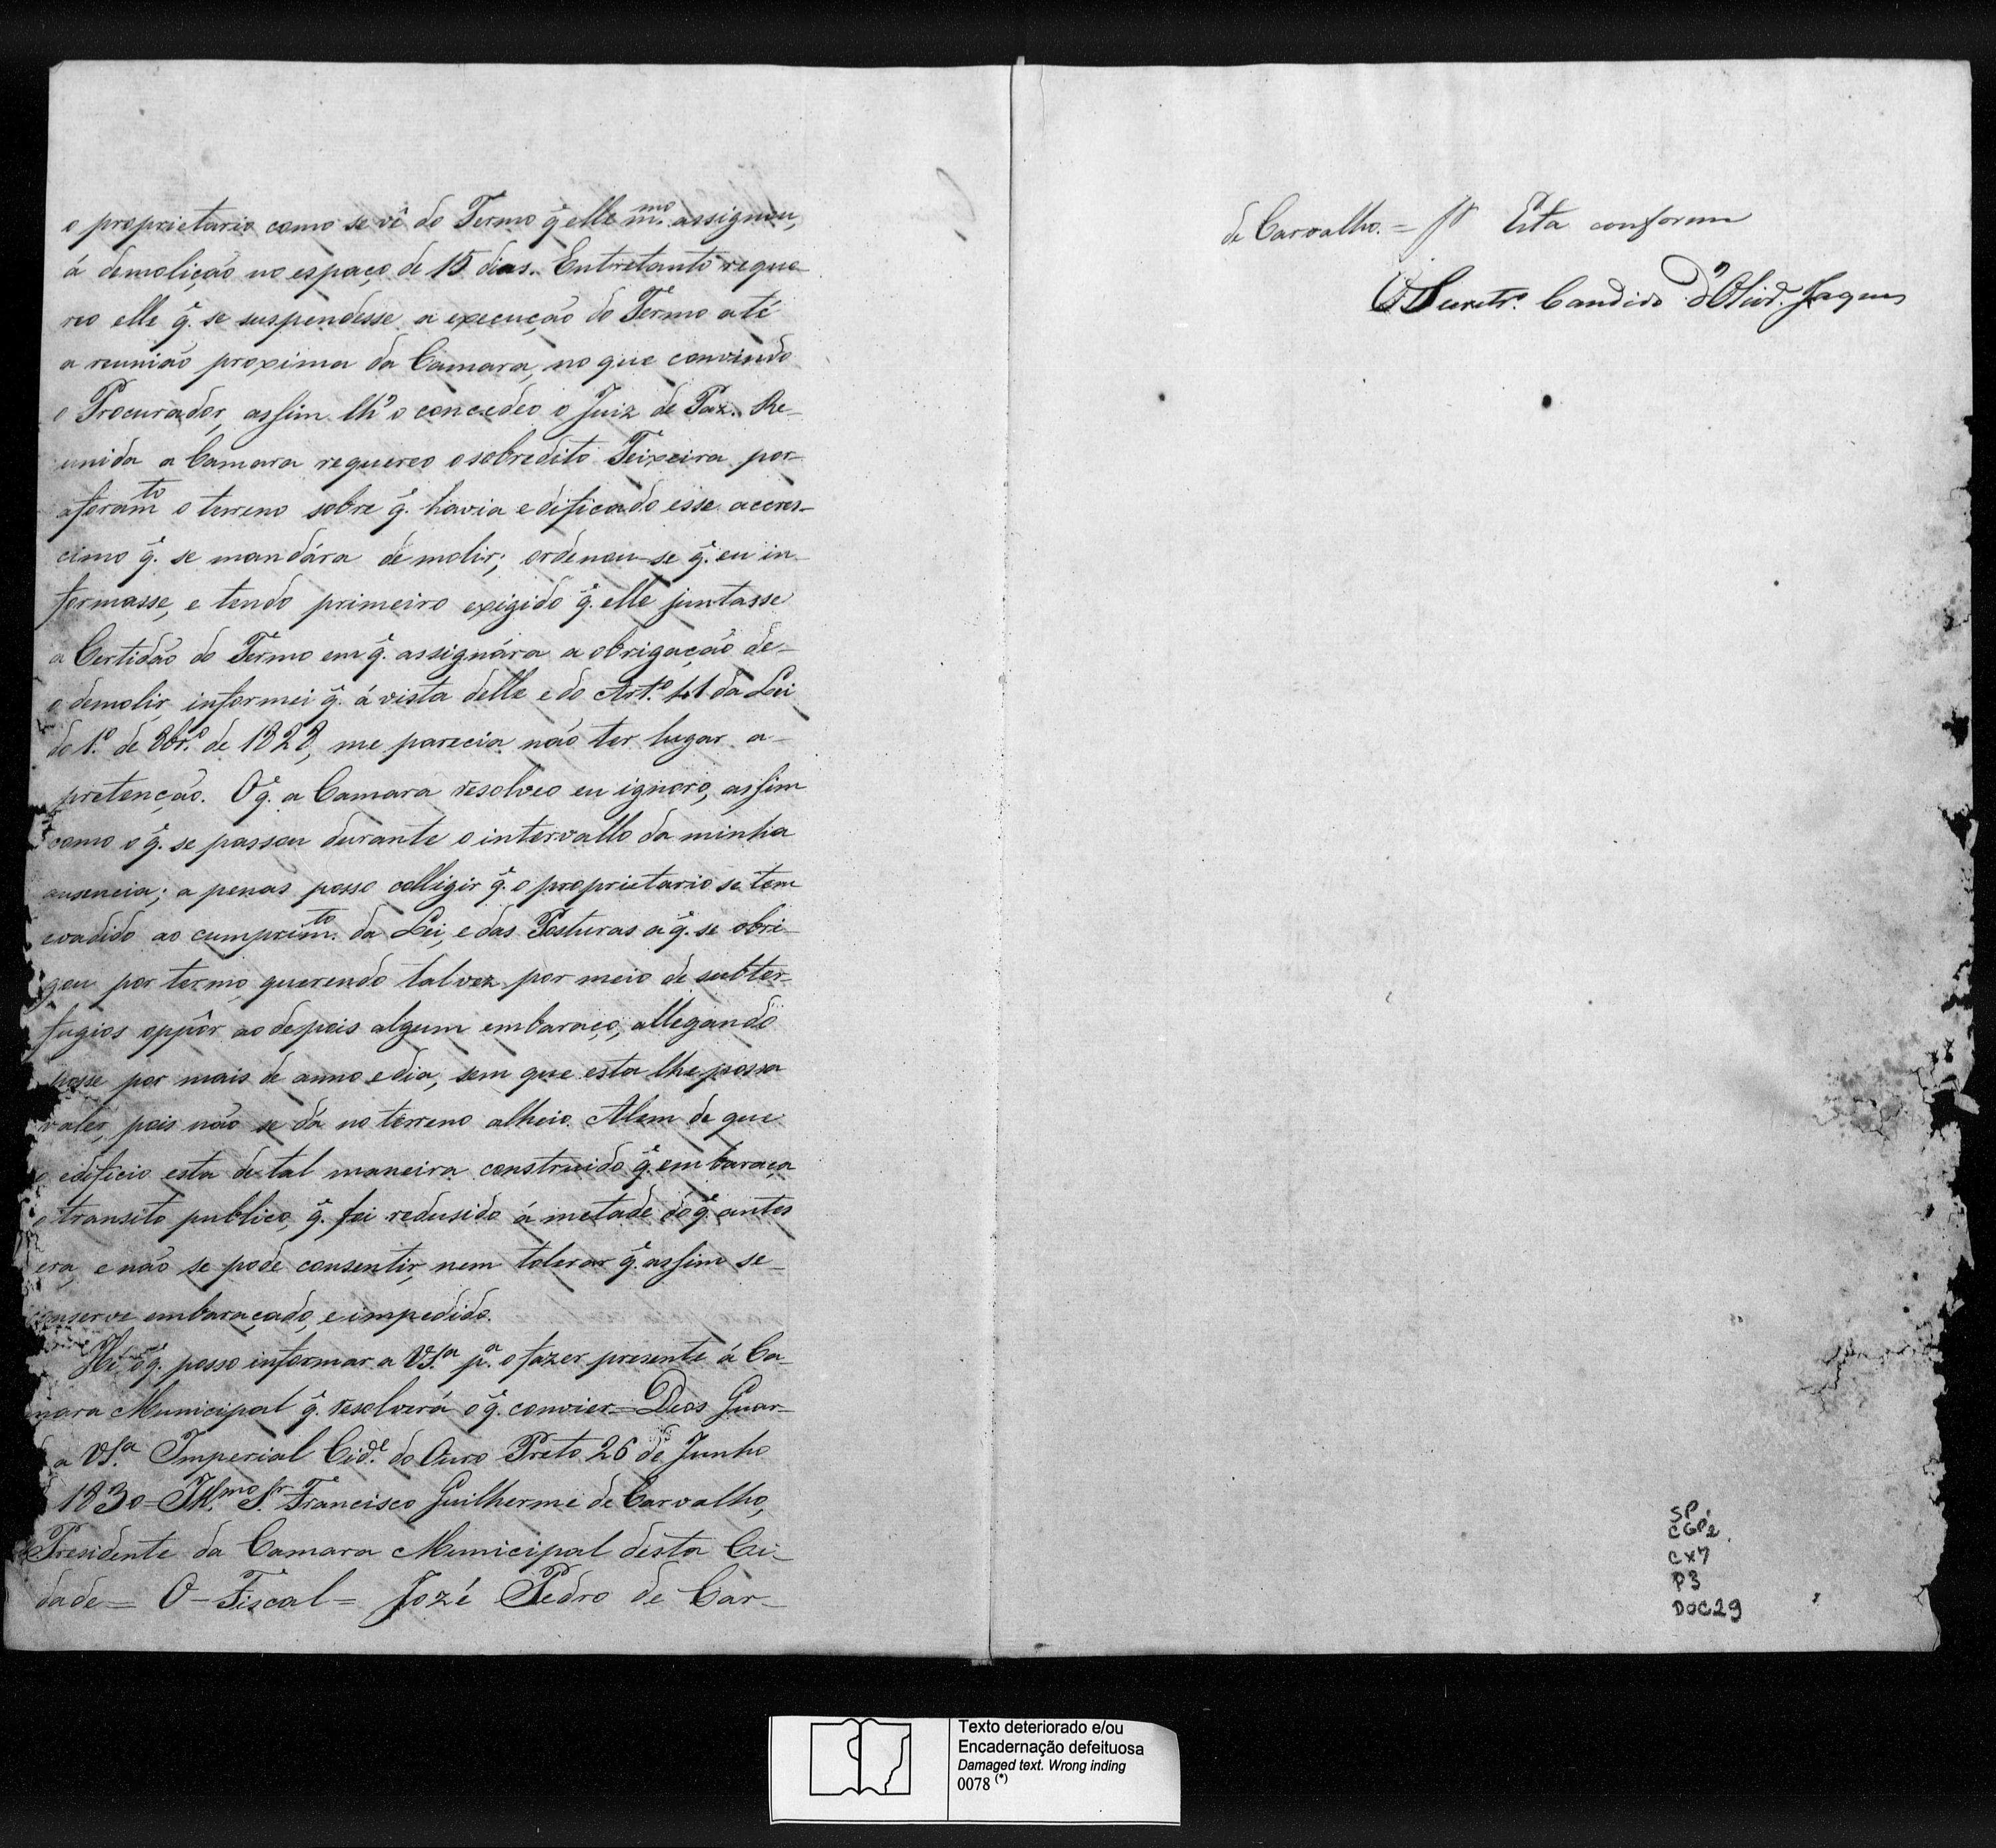 o proprietario como se vê do Termo q̃ elle m.mo assignou,
á demolição no espaço de 15 dias. Entretanto reque-
reo elle q̃. se suspendesse a execução do Termo até
a reunião proxima da Camara, no que convindo
o Procurador, assim lh'o concedeo o Juiz de Paz. Re-
unida a Camara requereo o sobredito Teixeira por
aforamto o terreno sobre q̃. havia edificado esse accres-
cimo q̃. se mandára demolir; ordenou-se q̃. eu in-
formasse, e tendo primeiro exigido q̃. elle juntasse
a Certidão do Termo em q̃. assignára a obrigação de-
o demolir, informei q̃. á vista delle e do Art.º 41 da Lei
do 1.º de 8br.º de 1828, me parecia não ter lugar a-
pretenção. O q̃. a Camara resolveo eu ignoro, assim
como o q̃. se passou durante o intervallo da minha
ausencia; a penas posso colligir q̃. o proprietario se tem
evadido ao cumprim.to da Lei, e das Posturas a q̃. se obri-
gou por termo, querendo talvez por meio de subter-
fugios oppôr ao depois algum embaraço, allegando
posse por mais de anno e dia, sem que esta lhe possa
valer, pois não se dá no terreno alheio. Alem de que
o edificio esta de tal maneira construido q̃. embaraça
o transito publico, q̃. foi redusido á metade do q̃. antes
era, e não se pode consentir, nem tolerar q̃. assim se-
conserve embaraçado, e impedido.
He o q̃. posso informar a VS.a p.a o fazer presente á Ca-
mara Municipal q̃. resolverá o q̃. convier = Deos Guar-
a VS.a Imperial Cid.e do Ouro Preto 26 de Junho
1830 = Ill.mo S.r Francisco Guilherme de Carvalho,
Presidente da Camara Municipal desta Ci-
dade = O - Fiscal = Jozé Pedro de Car-
de Carvalho. = Esta conforme
O Secretr.º Candido d'Olivr.a Jaques
SP
CGP2
CX7
P3
DOC29
Texto deteriorado e/ou
Encadernação defeituosa
Damaged text. Wrong inding
0078 (*)